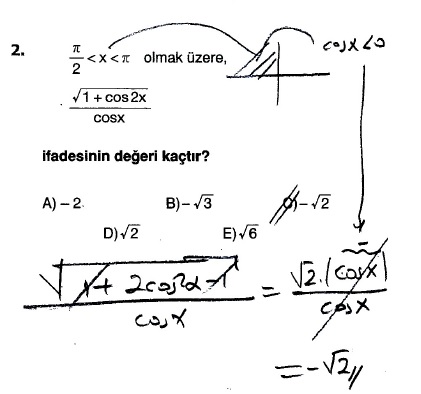 2. π/2 < x < π olmak üzere, cosx<0
√(1 + cos2x) / cosx
ifadesinin değeri kaçtır?
A) – 2 B) – √3 C) – √2
D) √2 E) √6
√(1 + 2cos²x – 1) / cosx = √2 · |cosx| / cosx
= – √2 //